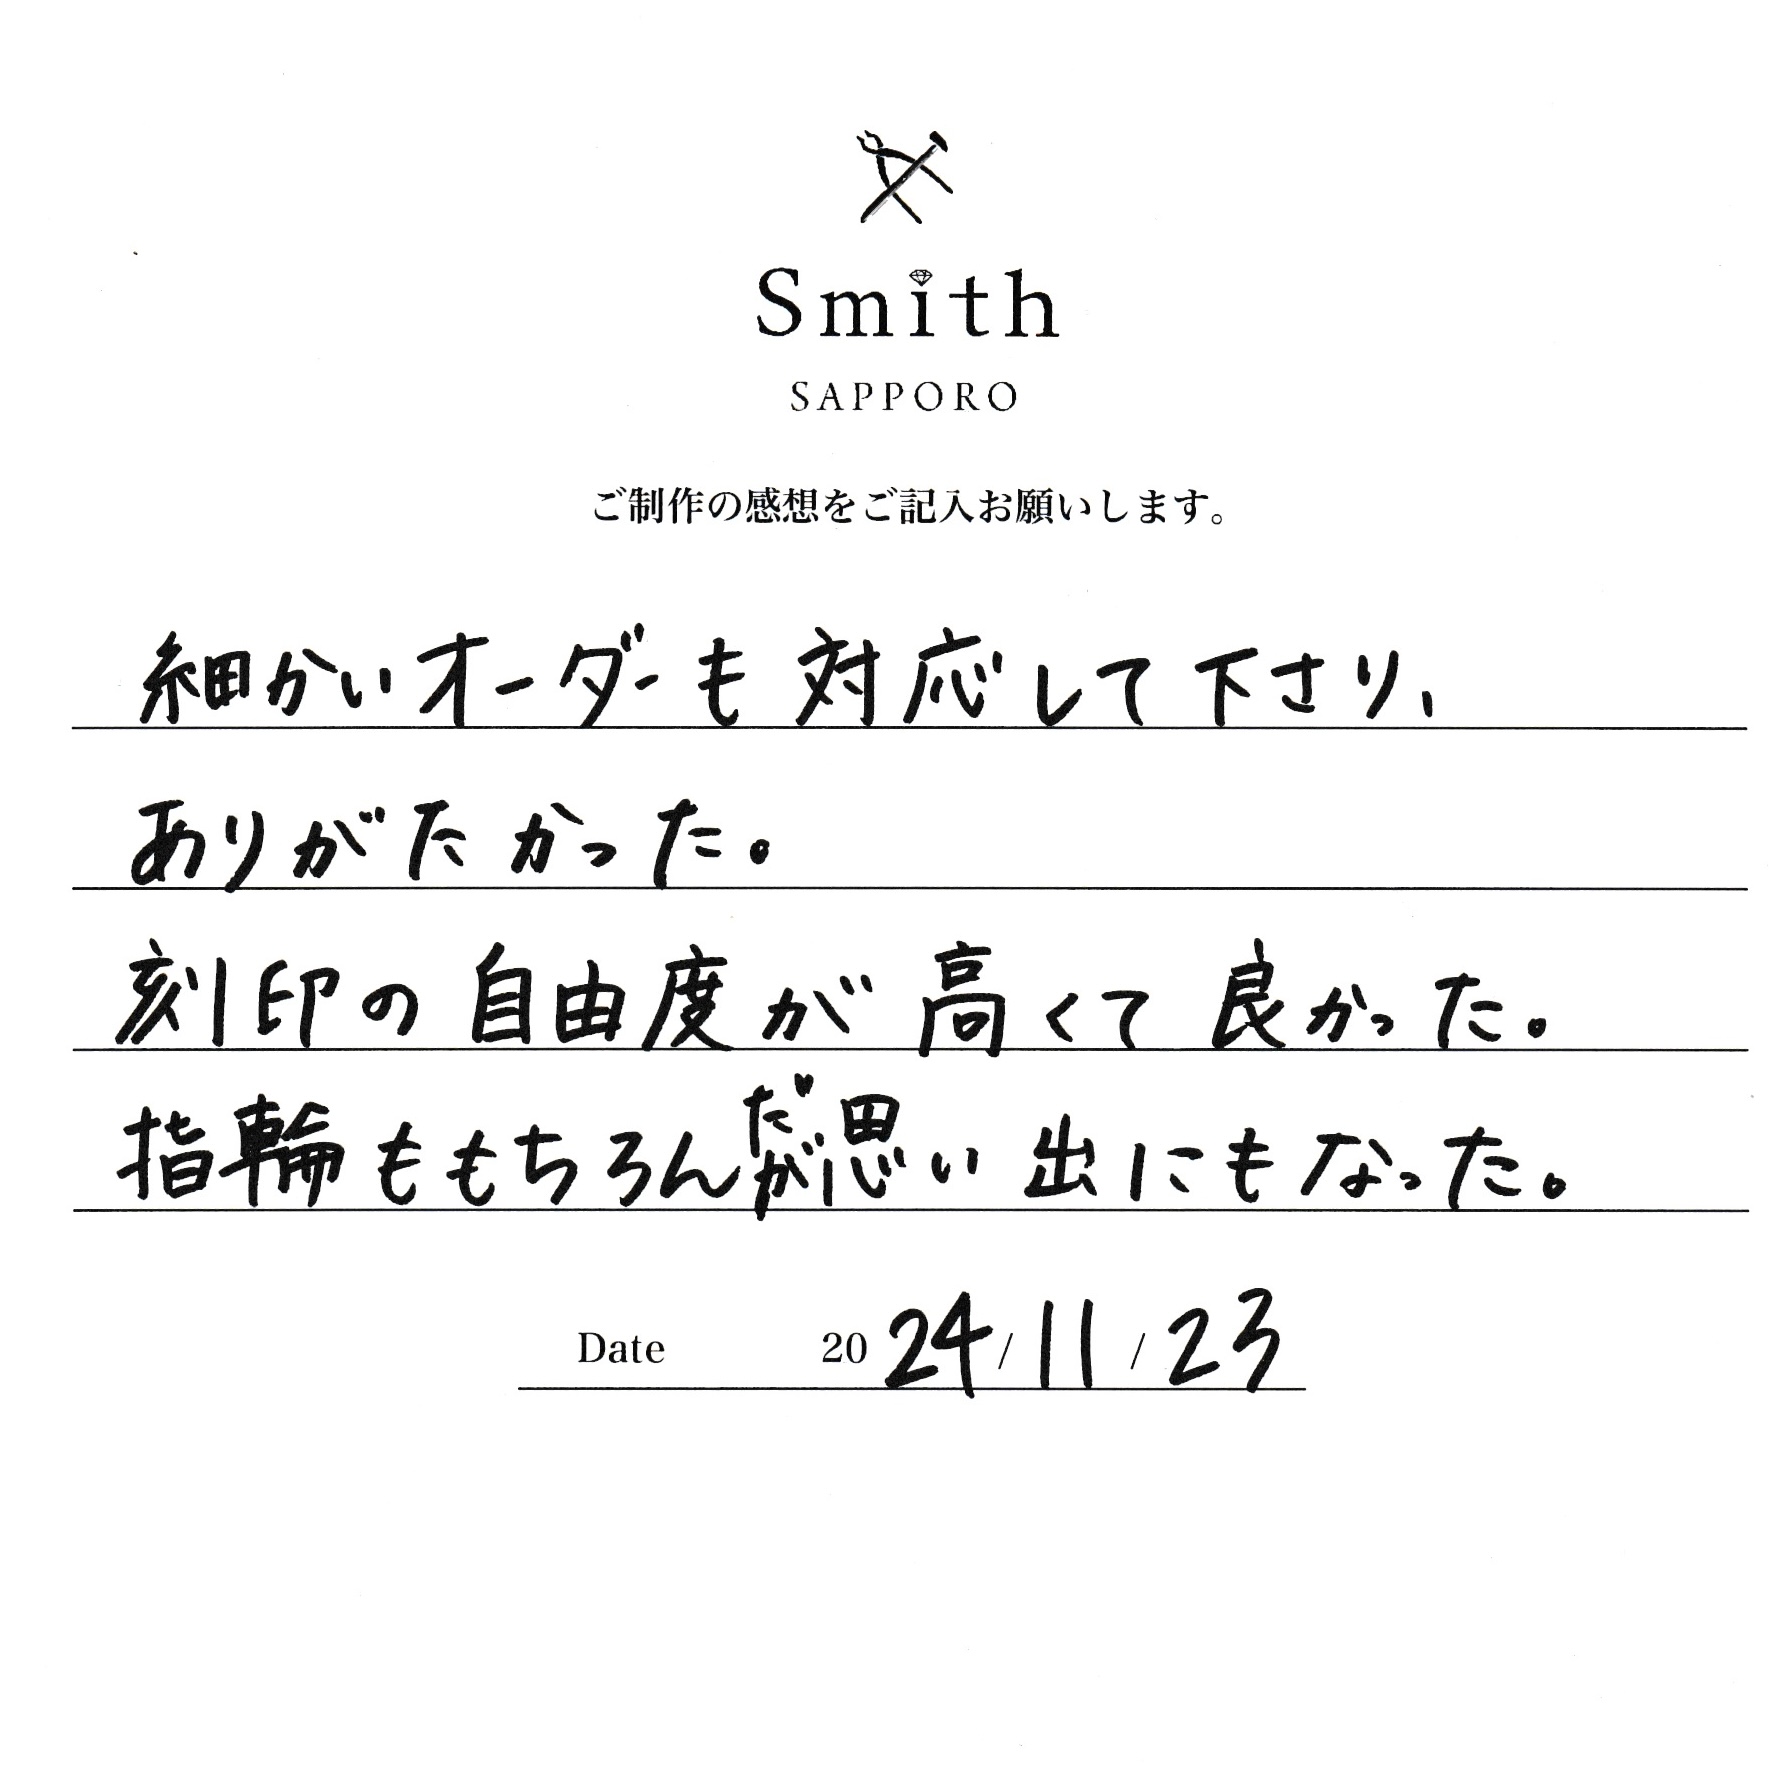 Smith
SAPPORO
ご制作の感想をご記入お願いします。
細かいオーダーも対応して下さり、
ありがたかった。
刻印の自由度が高くて良かった。
指輪ももちろんだが思い出にもなった。
Date 2024/11/23